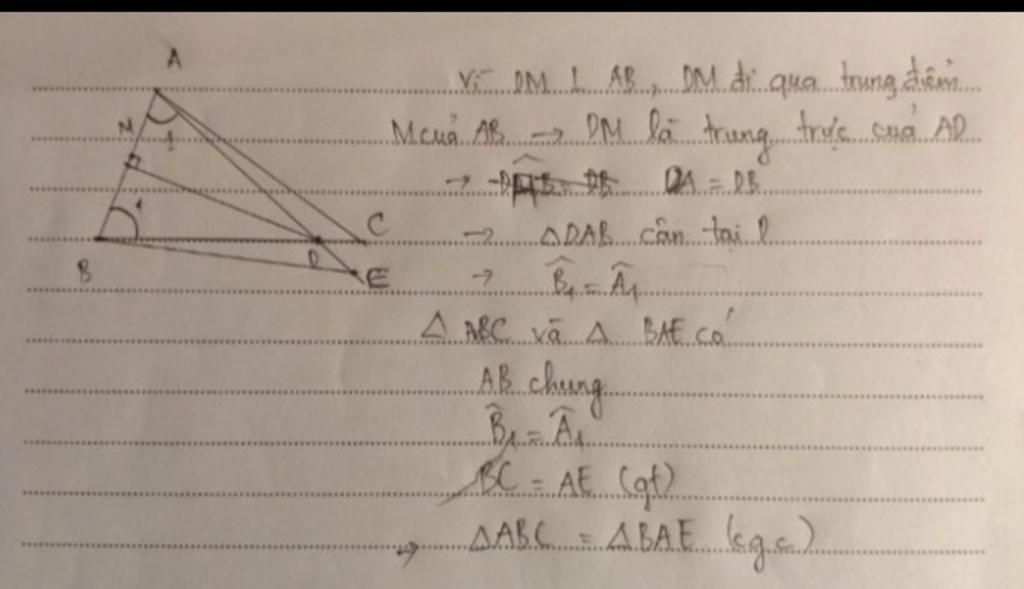 A
M
1
1
B
D
C
E
Vì DM ⊥ AB, DM đi qua trung điểm
M của AB → DM là trung trực của AD
→ DA = DB
→ △DAB cân tại D
→ B̂₁ = Â₁
△ ABC và △ BAE có
AB chung
B̂₁ = Â₁
BC = AE (gt)
→ △ABC = △BAE (cgc)